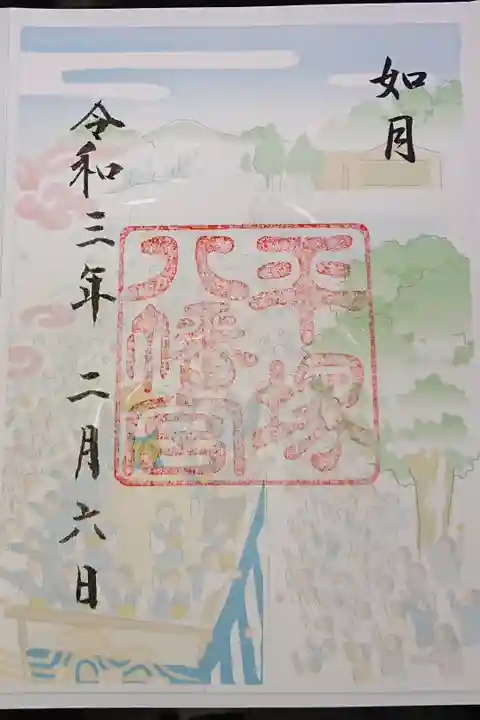 如月
平塚
八幡宮
令和三年 二月六日